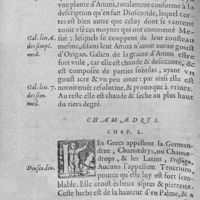 vne plante d'Ammi, totalement conforme à la
description qu'en fait Dioscoride, lequel certes
est bien autre que celuy dont auoient cy deuant
vsé les moynes qui ont commenté Mesué
Gal. lin. 6.
des simpl.
med.
: lesquels se couppent de leur cousteau
mesme, disant leur Ammi n'auoir aucun goust
d'Origan. Galien dit la graine d'Ammi estre
fort subtile, car elle est chaude & desiccante, &
est composee de parties subtiles, ayant vn
goust acre & vn peu amer, par ou il est
Gal. liu. 7.
des sim.
med.
notoire resolutiue, & prouoque à vriner.
Au reste elle est chaude & seche au plus haut
du tiers degré.
CHAMÆDRYS.
CHAP. L.
Les Grecs appellent la Germandree,
Chamædrys, ou Chamedrops,
& les Latins, Trissago,
Aucuns l'appellent Teucrium,
Dioscorid.
pource qu'elle luy est fort semblable.
Elle croist es lieux aspres & pierreux.
Ceste herbe est de la hauteur d'vn Palme, & a